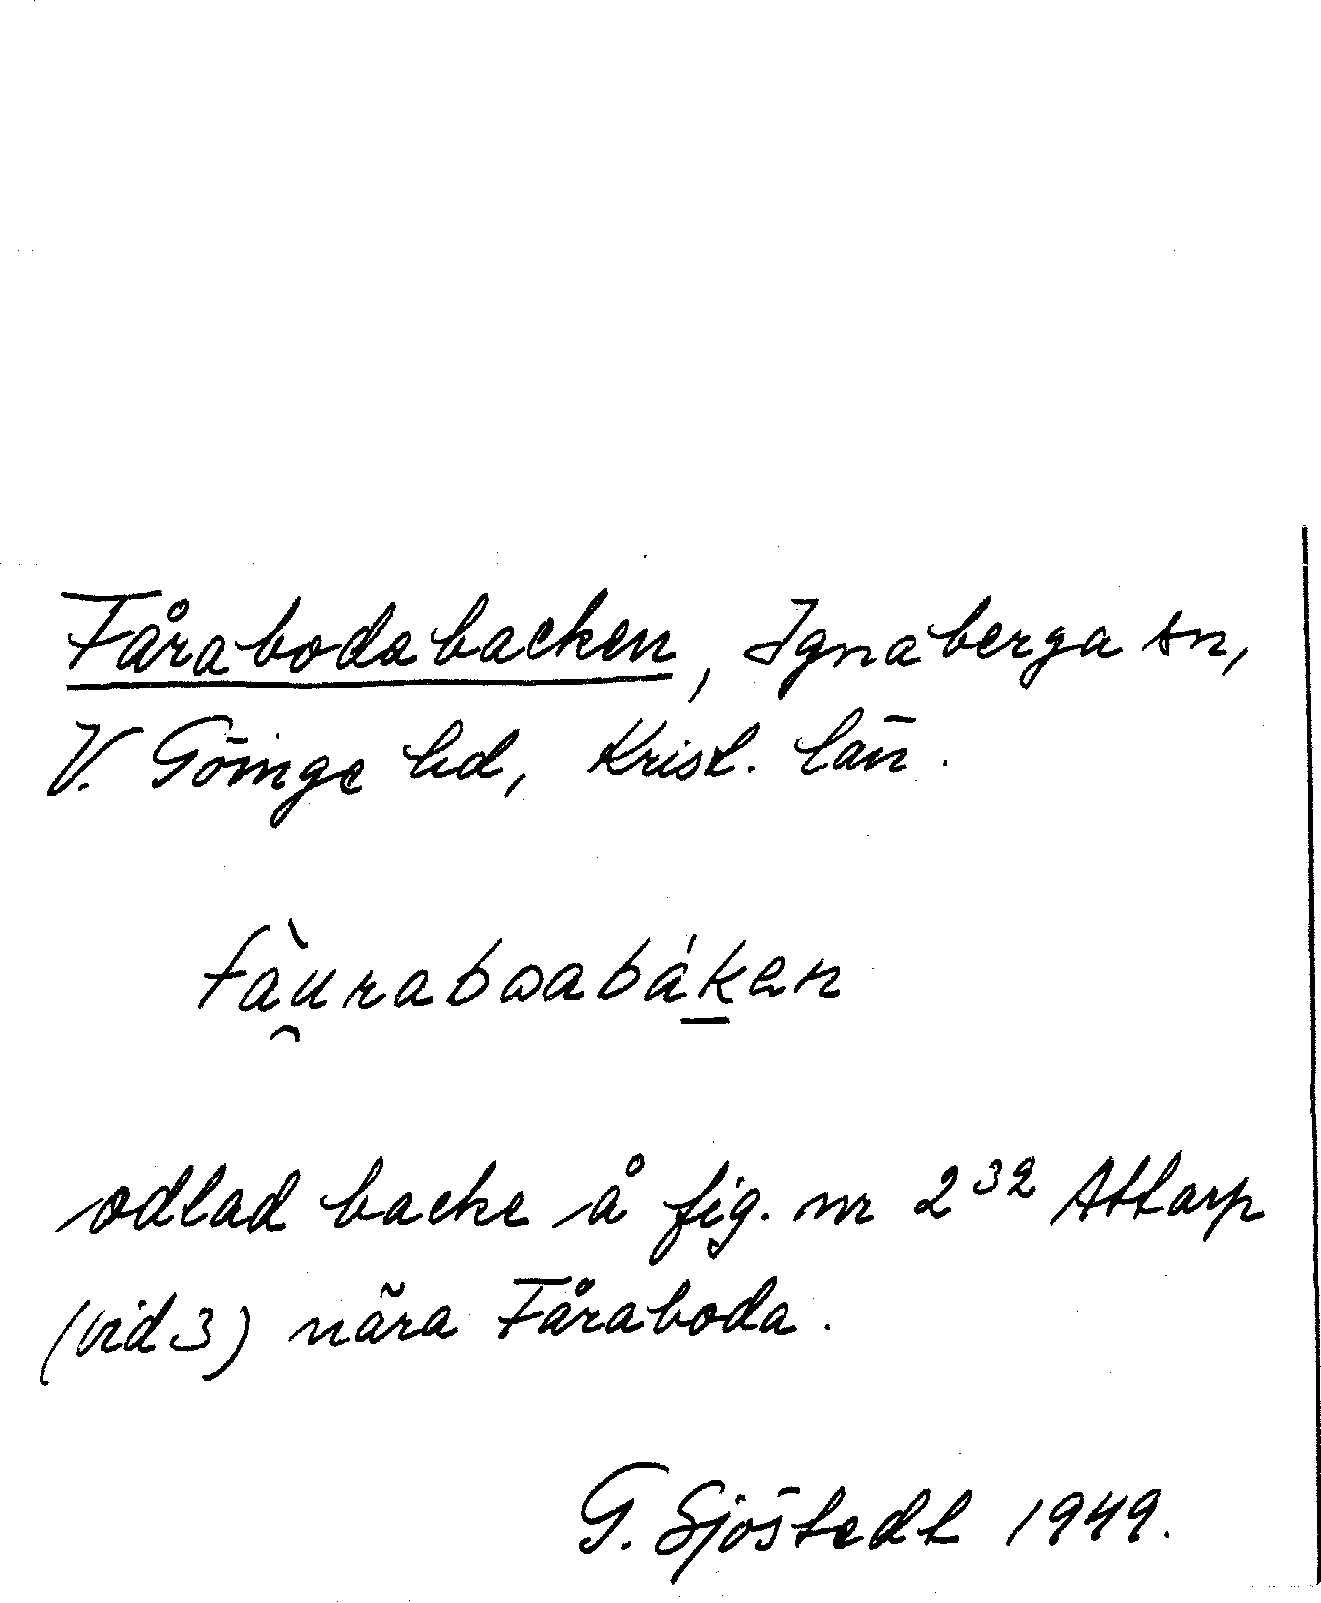 Fårabodabacken, Ignaberga sn,
V. Göinge hd, Krist. län.
fàu̯rabωabák̲en
odlad backe å fig. nr 2³² Attarp
(vid 3) nära Fåraboda.
G. Sjöstedt 1949.